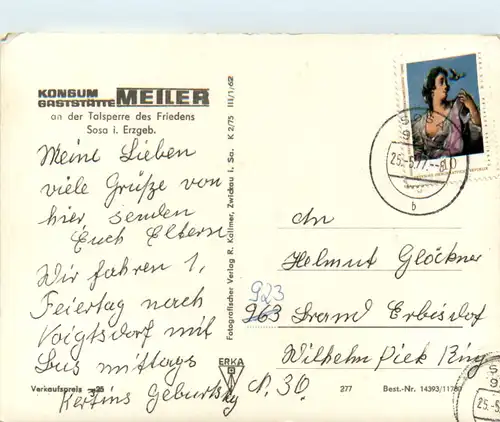 KONSUM
GASTSTÄTTE MEILER
an der Talsperre des Friedens
Sosa i. Erzgeb.
Meine Lieben
viele Grüße von
hier senden
Euch Eltern
Wir fahren 1,
Feiertag nach
Voigtsdorf mit
bus mittags
Kertins Geburtstg
Verkaufspreis -,25
Fotografischer Verlag R. Kallmer, Zwickau i. Sa. K 2/75 III/1/62
25.-5.77.--8
b
An
Helmut Glöckner
923
963 Brand Erbisdorf
Wilhelm Piek Ring
N. 30
ERKA
277
Best.-Nr. 14393/11760
25.-5.